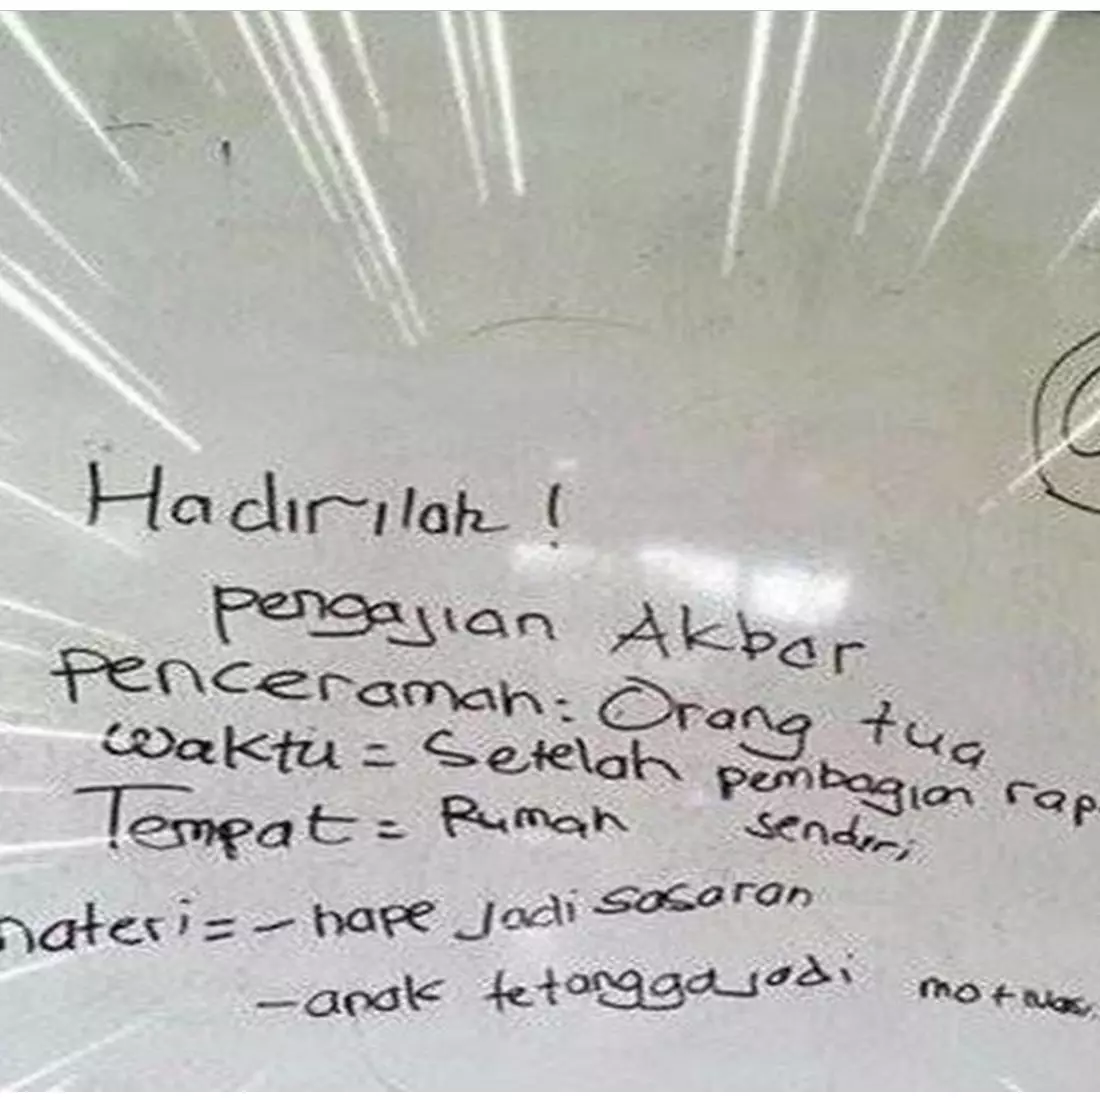 Hadirilah !
pengajian Akbar
Penceramah: Orang tua
waktu = Setelah pembagian rap
Tempat = Rumah sendiri
materi = - hape jadi sasaran
- anak tetangga jadi motivasi